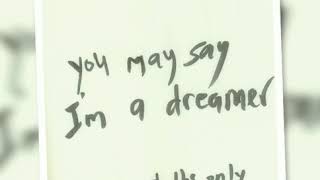 you may say
I'm a dreamer
the only